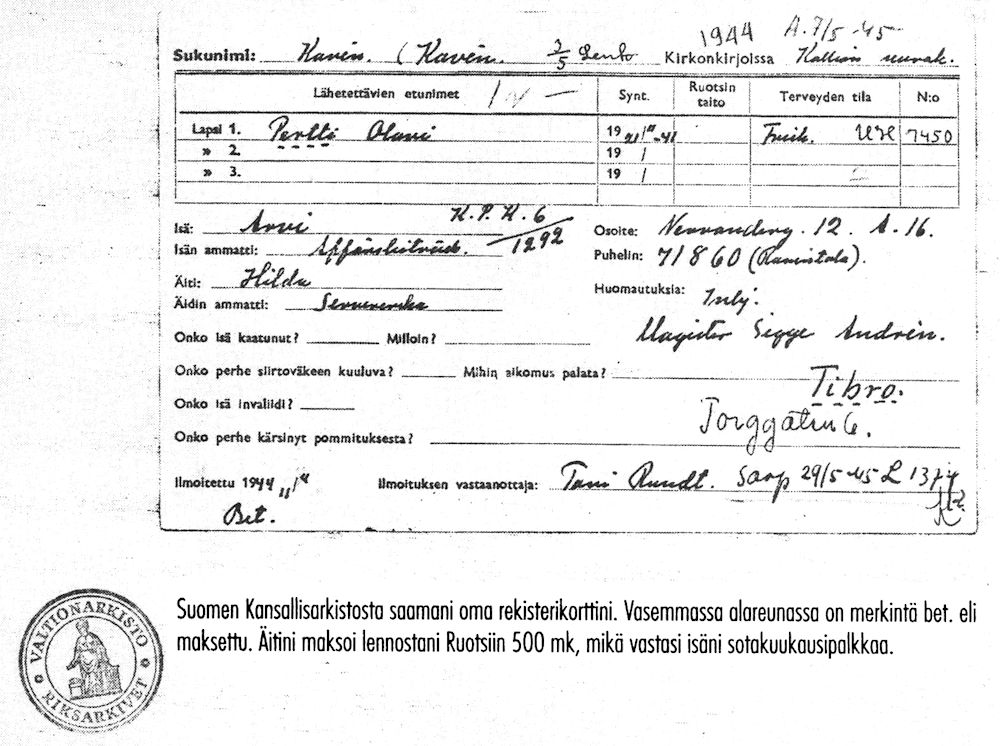 1944 A. 7/5 -45-
Sukunimi: Kavén. (Kavén. 3/5 Lento Kirkonkirjoissa Kallion seurak.
Lähetettävien etunimet Synt. Ruotsin taito Terveyden tila N:o
Lapsi 1. Pertti Olavi 19 -41 Frisk. 7450
» 2. 19 /
» 3. 19 /
Isä: Arvi H.P.K. 6/1292 Osoite: Nervanderg. 12. A. 16.
Isän ammatti: Affärsbiträd. Puhelin: 71860 (Ravintola).
Äiti: Hilda Huomautuksia: Inbj.
Äidin ammatti: Serveerska
Magister Sigge Andrén.
Onko isä kaatunut? Milloin?
Onko perhe siirtoväkeen kuuluva? Mihin aikomus palata?
Tibro.
Onko isä invaliidi?
Torggatan 6.
Onko perhe kärsinyt pommituksesta?
Ilmoitettu 1944 Ilmoituksen vastaanottaja: Rundt. Saap 29/5-45 L
Bet.
VALTIONARKISTO
RIKSARKIVET
Suomen Kansallisarkistosta saamani oma rekisterikorttini. Vasemmassa alareunassa on merkintä bet. eli
maksettu. Äitini maksoi lennostani Ruotsiin 500 mk, mikä vastasi isäni sotakuukausipalkkaa.